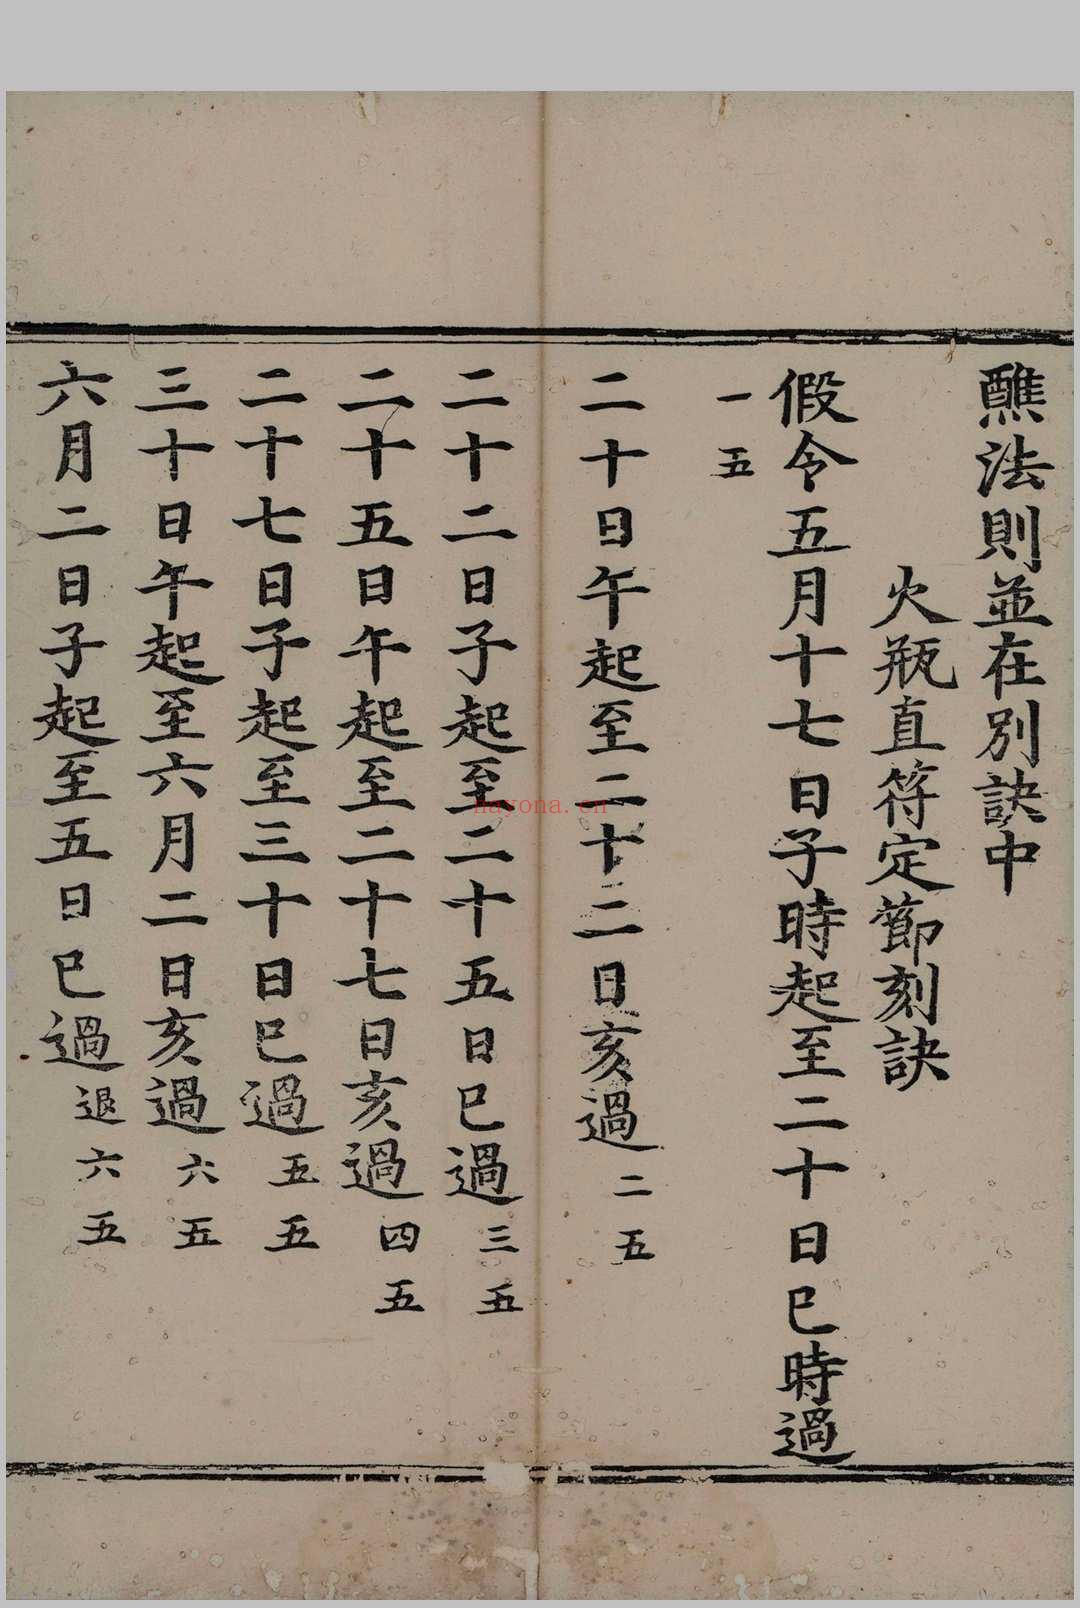 醮法則並在別訣中
火瓶直符定節刻訣
假令五月十七日子時起至二十日巳時過
一五
二十日午起至二十二日亥過二五
二十二日子起至二十五日巳過三五
二十五日午起至二十七日亥過四五
二十七日子起至三十日巳過五五
三十日午起至六月二日亥過六五
六月二日子起至五日巳過退六五
nayona.cn